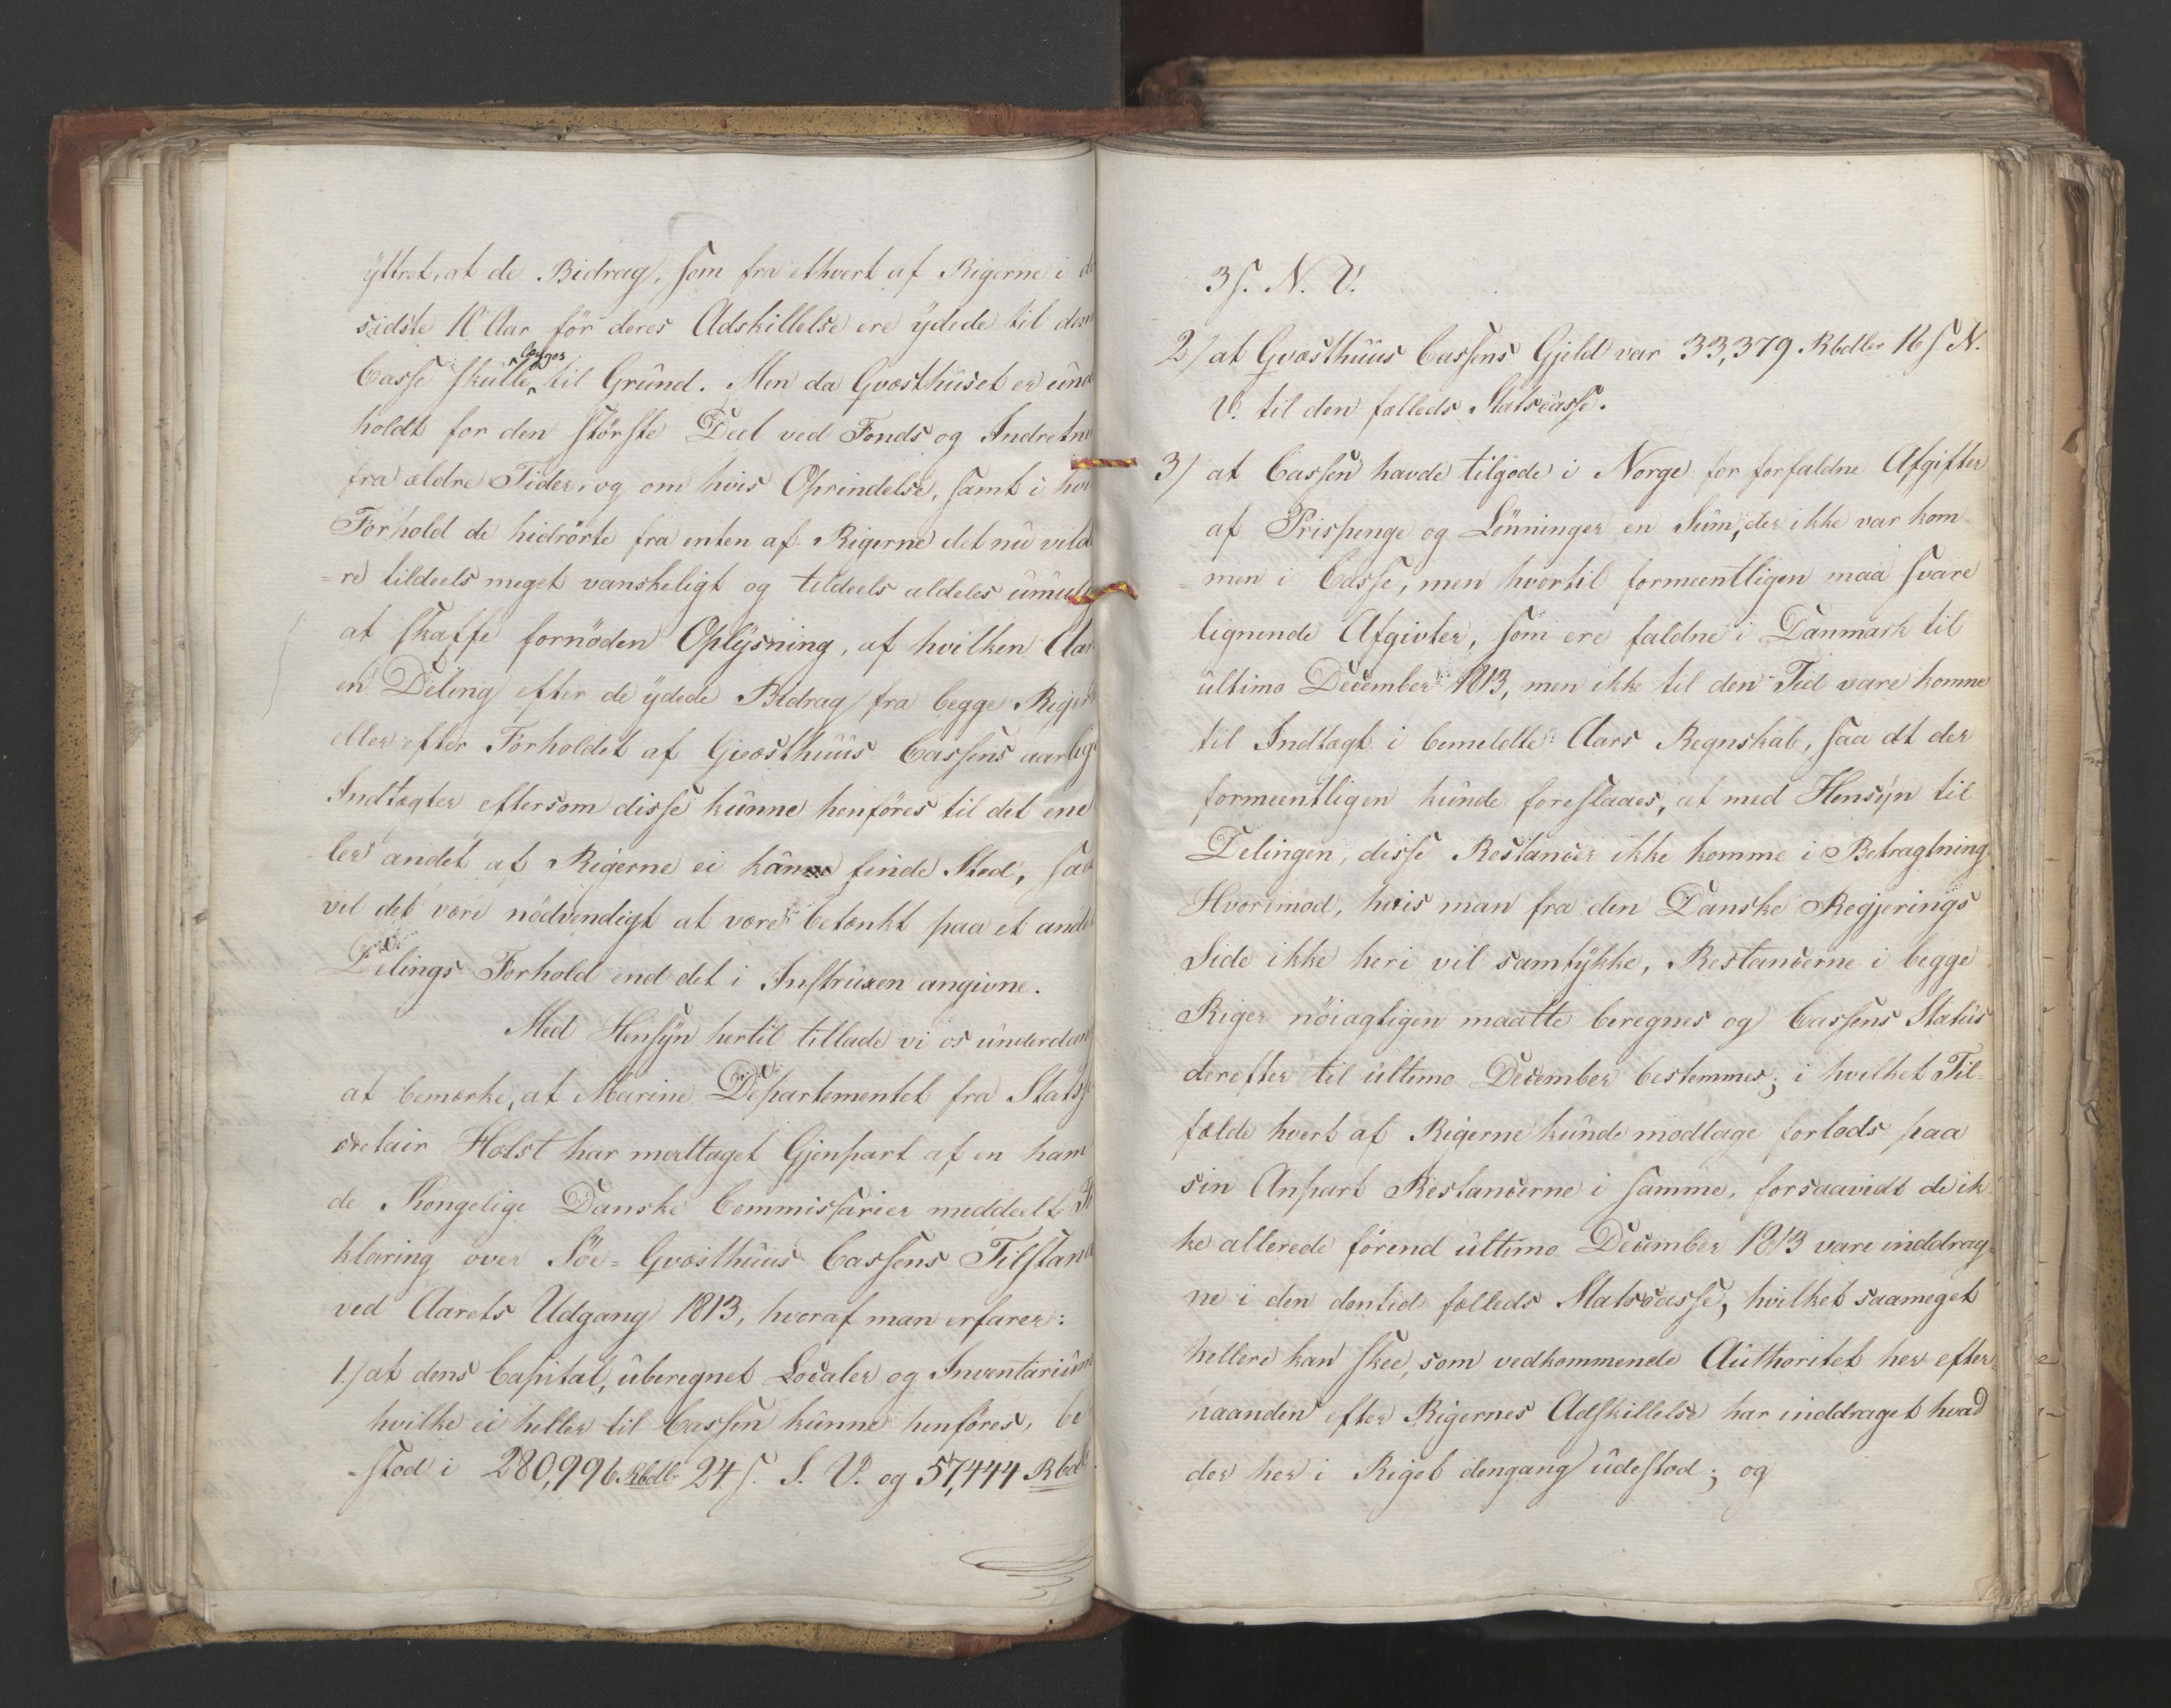 yttret, at de Bidrag, som fra ethvert af Rigerne i de
sidste 10 Aar för deres Adskillelse ere ydede til den
Casse skulle lægges til Grund. Men da Qvæsthuset er und
holdt for den störste Deel ved Fonds og Indretn
fra ældre Tider, og om hvis Oprindelse, samt i hvi
Forhold de hidrörte fra enten af Rigerne det nu vild
=re tildeels meget vanskeligt og tildeels aldeles umuli
at skaffe fornöden Oplysning, af hvilken Aar
en Deling efter de ydede Bidrag fra begge Riger
eller efter Forholdet af Qvæsthuus Cassens aarlig
Indtægter eftersom disse kunne henföres til det ene
ler andet af Rigerne ei kan finde Sted, saa
vil det være nödvendigt at være betænkt paa et andet
Delings Forhold end det i Instruxen angivne.
Med Hensyn hertil tillade vi os underdan
at bemærke, at Marine Departementet fra Statsse
cretair Holst har modtaget Gjenpart af en ham
de Kongelige Danske Commissarier meddeelt
klaring over Söe-Qvæsthuus Cassens Tilstand
ved Aarets Udgang 1813, hvoraf man erfarer:
1.) at dens Capital, uberegnet Localer og Inventarium
hvilke ei heller til Cassen kunne henföres, be
=stod i 280,996 Rbdlr 24 s. S. V. og 57,444 Rbdlr
3 s. N. V.
2) at Qvæsthuus Cassens Gjeld var 33,379 Rbdler 16 s N.
V. til den fælleds Statscasse.
3) at Cassen havde tilgode i Norge for forfaldne Afgifter
af Prispenge og Lönninger en Sum, der ikke var kom=
=men i Casse, men hvortil formeentligen maa svare
lignende Afgivter, som ere faldne i Danmark til
ultimo December 1813, men ikke til den Tid vare komne
til Indtægt i bemeldte Aars Regnskab, saa at der
formeentligen kunde foreslaaes, at med Hensyn til
Delingen, disse Restancer ikke komme i Betragtning.
Hvorimod, hvis man fra den Danske Regjerings
Side ikke heri vil samtykke, Restancerne i begge
Riger nöiagtigen maatte beregnes og Cassens Status
derefter til ultimo December bestemmes; i hvilket Til=
fælde hvert af Rigerne kunde modtage forlods paa
sin Anpart Restancerne i samme, forsaavidt de ik
ke allerede förend ultimo December 1813 vare inddrag=
ne i den dentid fælleds Statscasse, hvilket saameget
hellere kan skee, som vedkommende Authoritet her efter
haanden efter Rigernes Adskillelse har inddraget hvad
der her i Riget dengang udestod; og